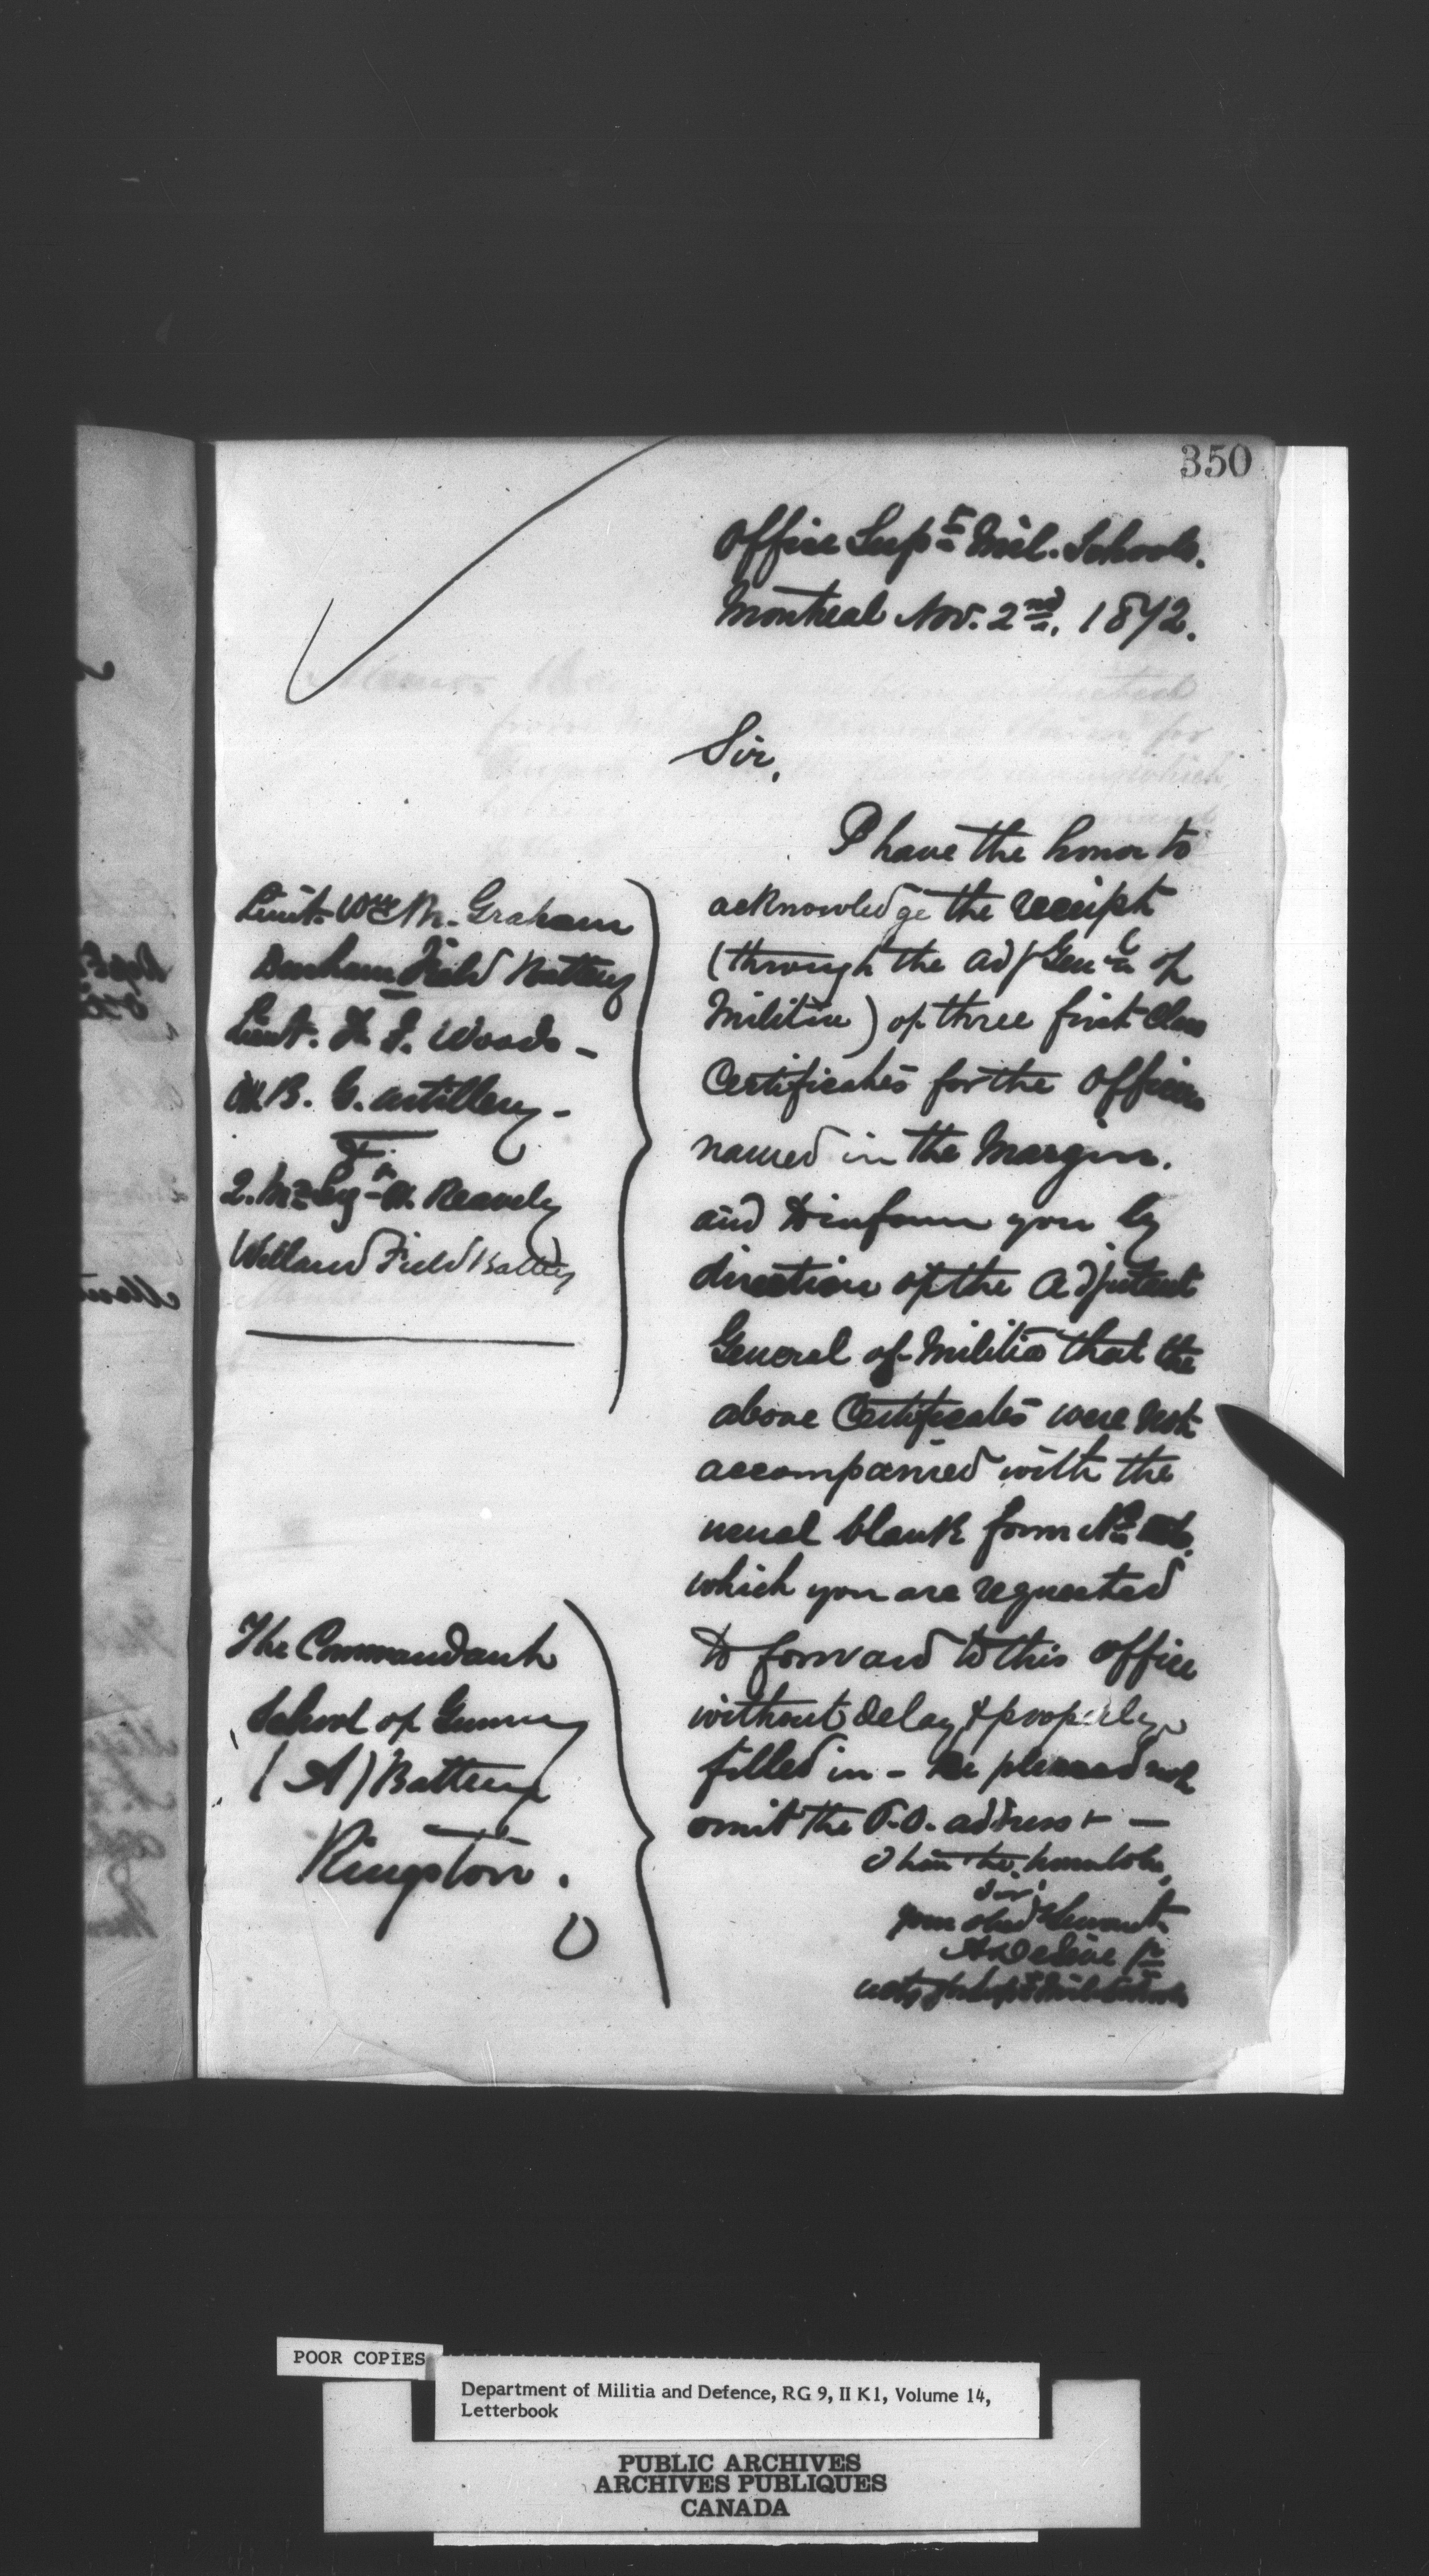 350
Office Supt Mil. Schools.
Montreal Nov. 2nd, 1872.
Sir,
I have the honor to
acknowledge the receipt
(through the Adjt Genl of
Militia) of three first Class
Certificates for the Officers
named in the Margin.
and to inform you by
direction of the Adjutant
General of Militia that the
above Certificates were not
accompanied with the
usual blank form No
which you are requested
to forward to this office
without delay & properly
filled in - be pleased not
omit the P.O. address -
I have the honor to be,
Sir,
your obedt Servant
Lieut. Wm M. Graham
Durham Field Battery
Lieut. Woods -
G. Artillery -
Q. Mr Sergt Reavely
Welland Field Battery
The Commandant
School of Gunnery
(A) Battery
Kingston.
POOR COPIES
Department of Militia and Defence, RG 9, II K1, Volume 14,
Letterbook
PUBLIC ARCHIVES
ARCHIVES PUBLIQUES
CANADA